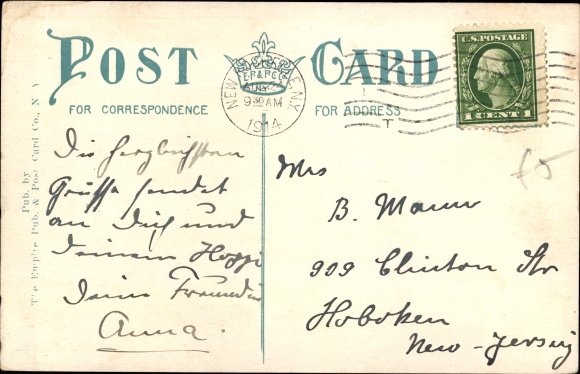 POST CARD
FOR CORRESPONDENCE
FOR ADDRESS
Pub. by
The Empire Pub. & Post Card Co., N. Y.
NEW N.Y.
9 30 AM
1914
U.S. POSTAGE
1 CENT 1
Die herzlichsten
Grüsse sendet
an Dich und
Deinen
Deine Freundin
Anna.
Mrs
B. Mann
909 Clinton Str
Hoboken
New-Jersey